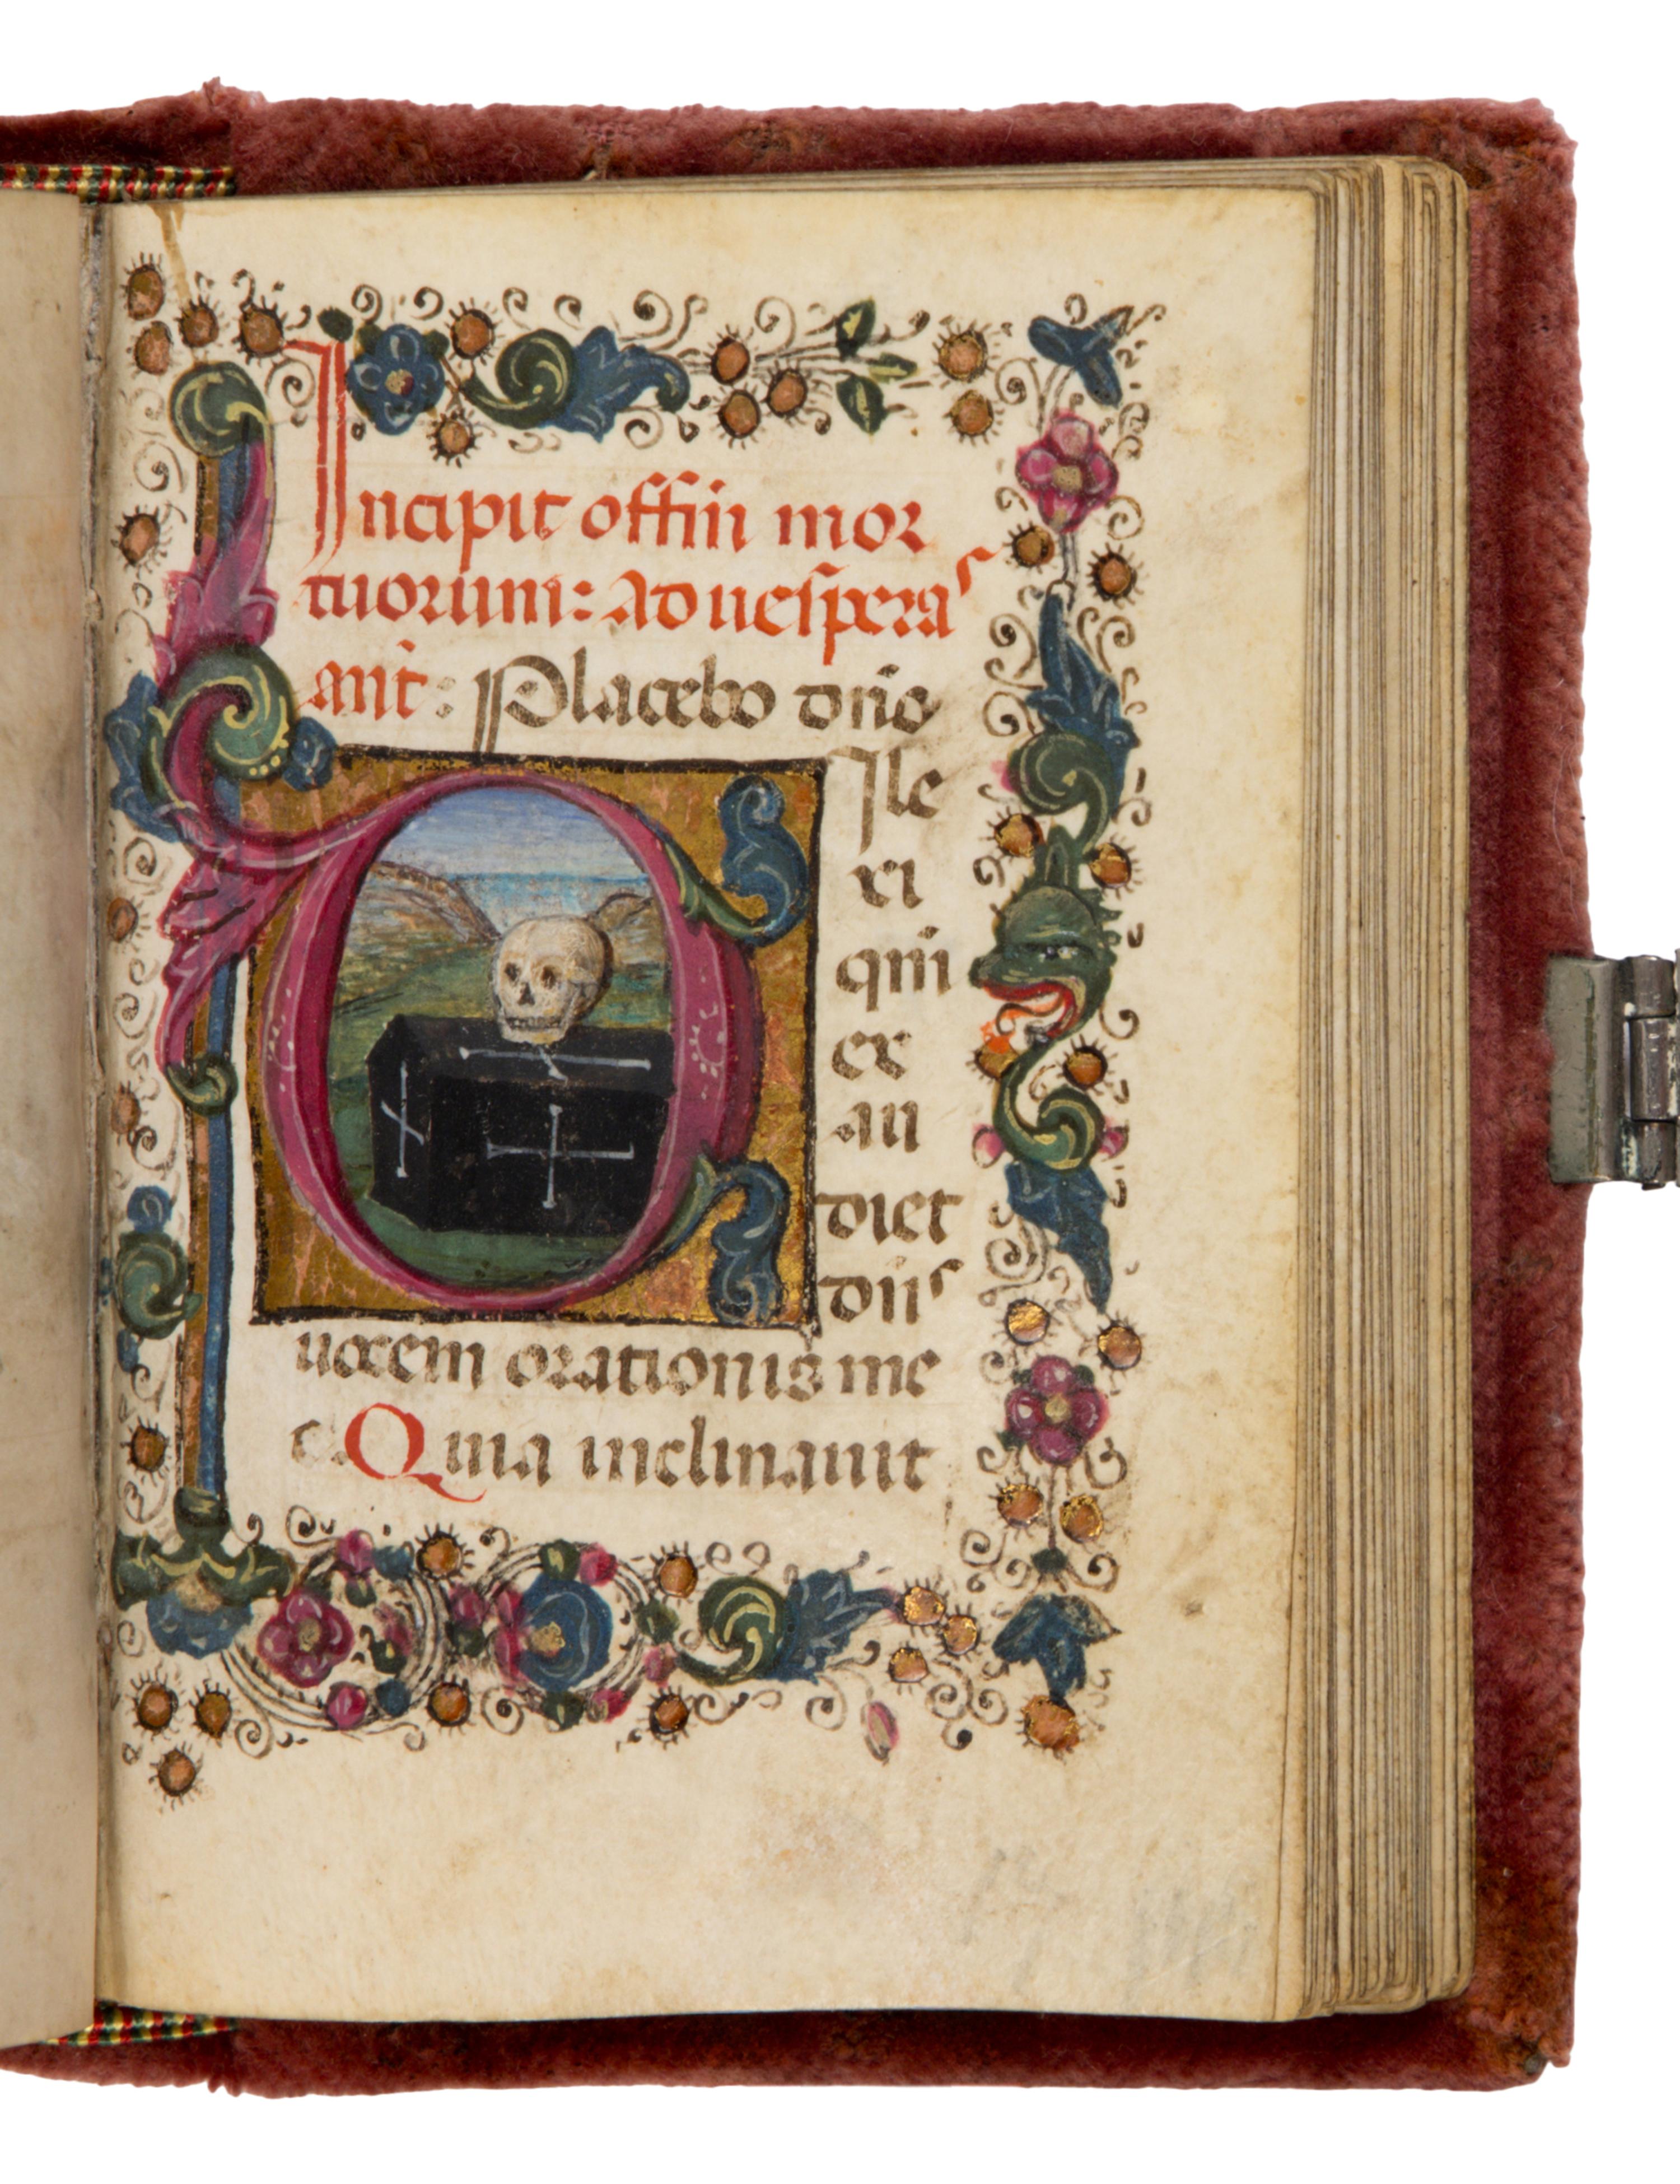 Incipit offiū mor
tuorum: Ad uespera
s
ant̄: Placebo dn̄o
DIle
xi
qm̄
ex
au
diet
dn̄s
uocem orationis me
e. Quia inclinauit